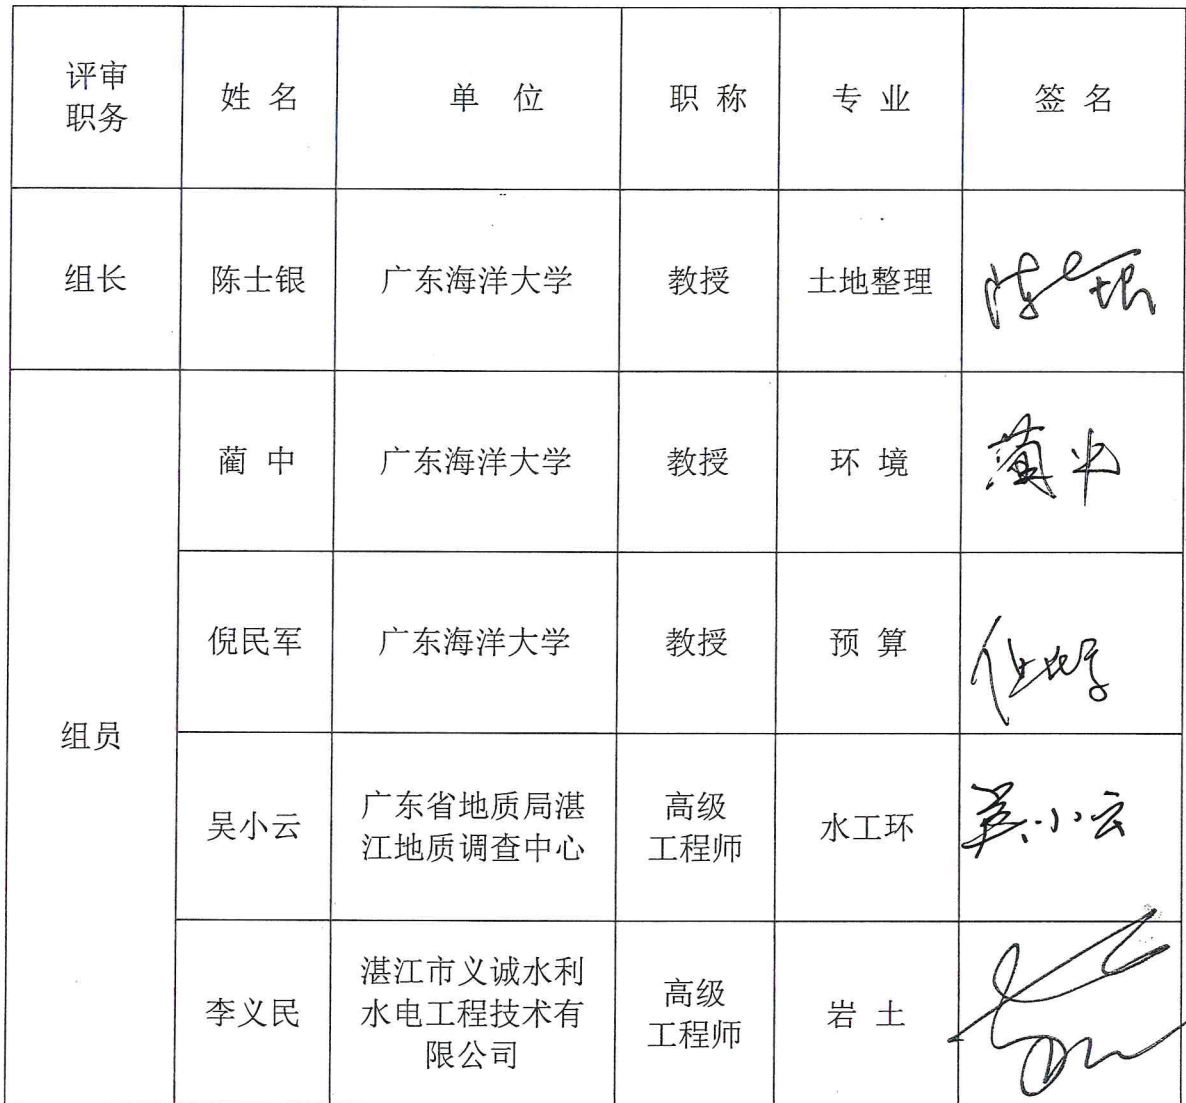 评审
职务
姓 名
单 位
职 称
专 业
签 名
组长
陈士银
广东海洋大学
教授
土地整理
陈士银
组员
蔺 中
广东海洋大学
教授
环 境
蔺中
倪民军
广东海洋大学
教授
预 算
吴小云
广东省地质局湛
江地质调查中心
高级
工程师
水工环
吴小云
李义民
湛江市义诚水利
水电工程技术有
限公司
高级
工程师
岩 土